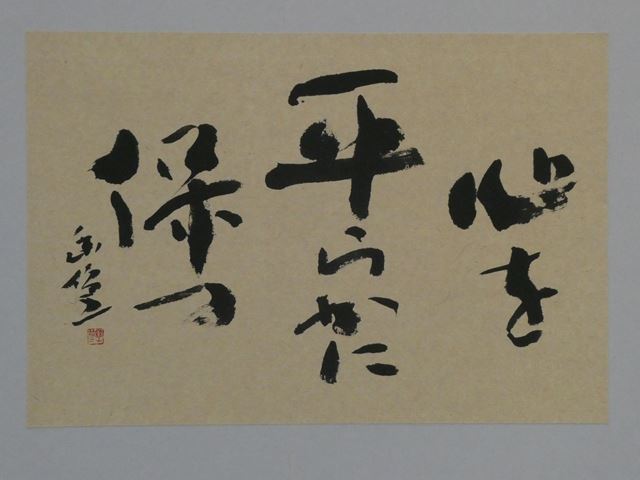 心を
平らかに
保つ